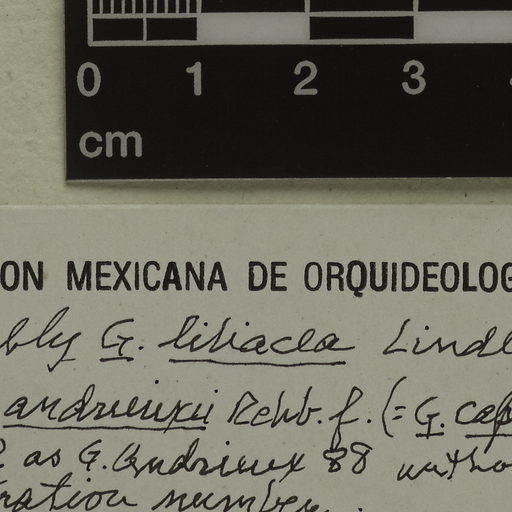 0 1 2 3
cm
ON MEXICANA DE ORQUIDEOLOG
bly G. liliacea Lindl
andrieuxii Rchb. f. (= G. cap
as G. Andrieux 88 witho
ration number.